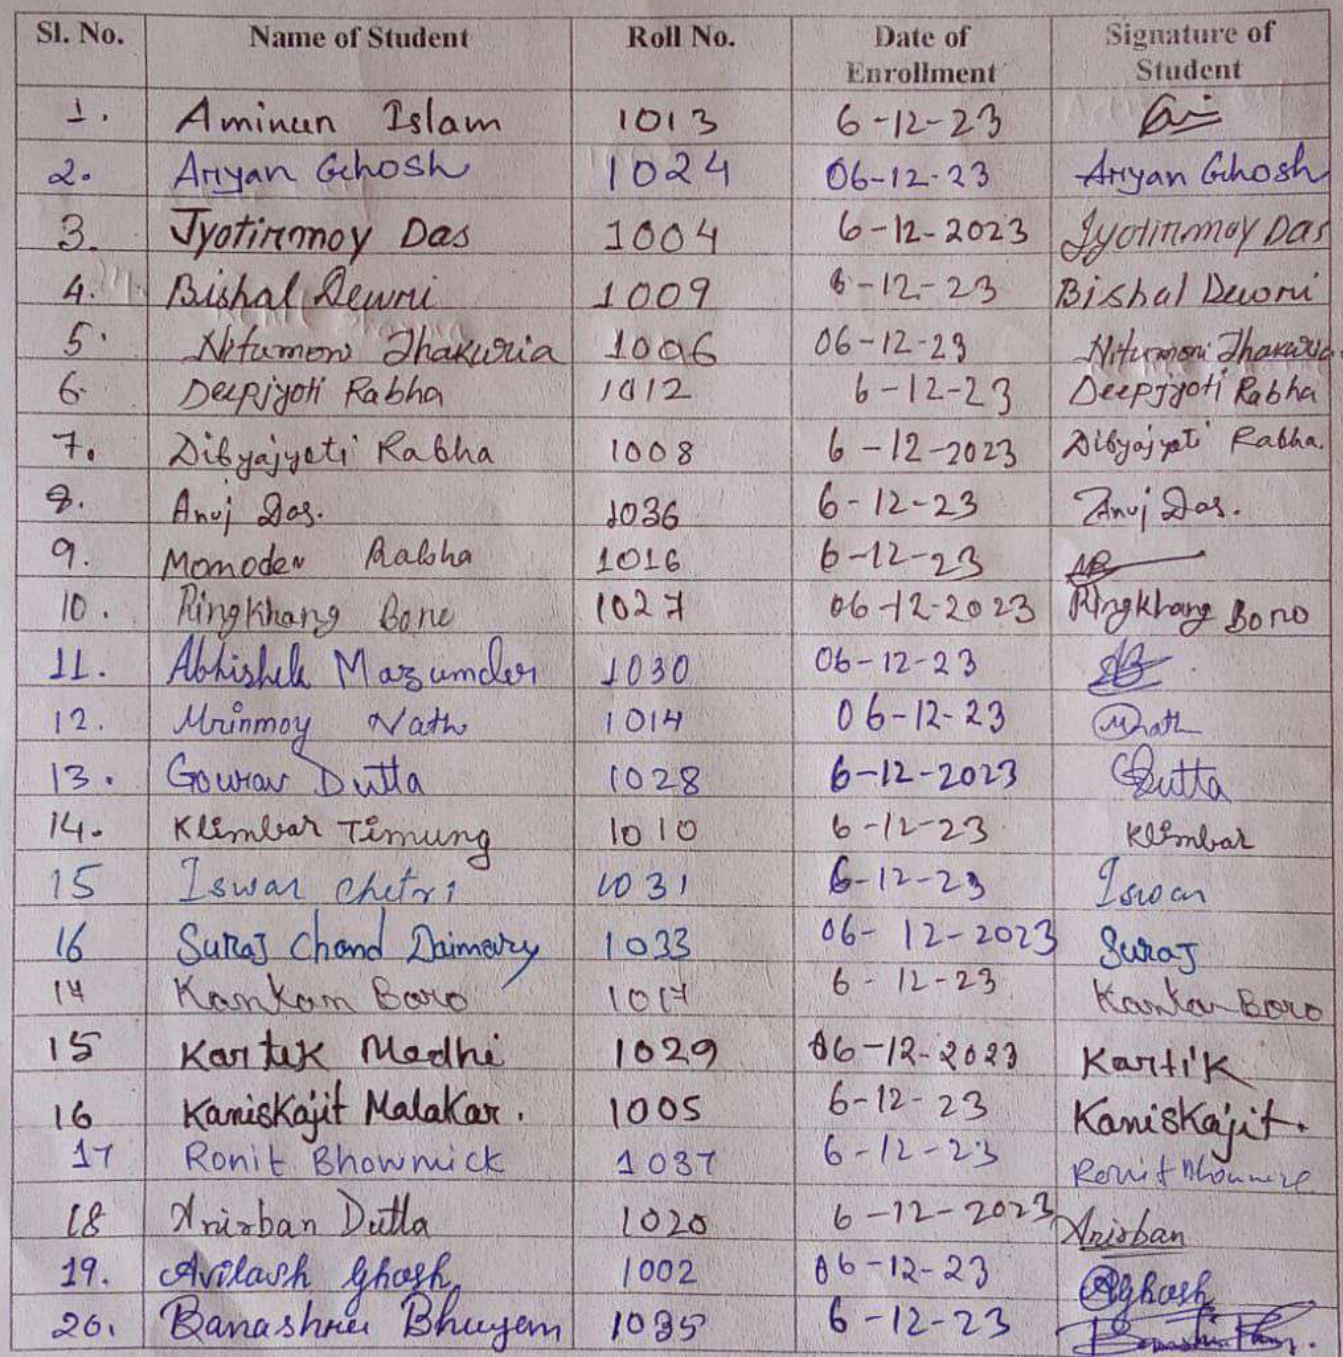 Sl. No. Name of Student Roll No. Date of Enrollment Signature of Student
1. Aminun Islam 1013 6-12-23
2. Ariyan Ghosh 1024 06-12-23 Ariyan Ghosh
3. Jyotirmoy Das 1004 6-12-2023 Jyotirmoy Das
4. Bishal Dewri 1009 6-12-23 Bishal Dewri
5. Nitumoni Thakuria 1006 06-12-23 Nitumoni Thakuria
6. Deepjyoti Rabha 1012 6-12-23 Deepjyoti Rabha
7. Dibyajyoti Rabha 1008 6-12-2023 Dibyajyoti Rabha.
8. Anuj Das. 1036 6-12-23 Anuj Das.
9. Monoder Rabha 1016 6-12-23
10. Ringkhang Boro 1027 06-12-2023 Ringkhang Boro
11. Abhishek Mazumder 1030 06-12-23
12. Mrinmoy Nath 1014 06-12-23 MNath
13. Gourav Dutta 1028 6-12-2023 GDutta
14. Klimbar Timung 1010 6-12-23 Klimbar
15 Iswar Chetri 1031 6-12-23 Iswar
16 Suraj Chand Daimary 1033 06-12-2023 Suraj
17 Kankan Boro 1017 6-12-23 Kankan Boro
15 Kartik Medhi 1029 06-12-2023 Kartik
16 Kaniskajit Malakar. 1005 6-12-23 Kaniskajit.
17 Ronit Bhowmick 1037 6-12-23 Ronit Bhowmick
18 Anirban Dutta 1020 6-12-2023 Anirban
19. Avilash Ghosh 1002 06-12-23 AGhosh
20. Banashree Bhuyan 1035 6-12-23